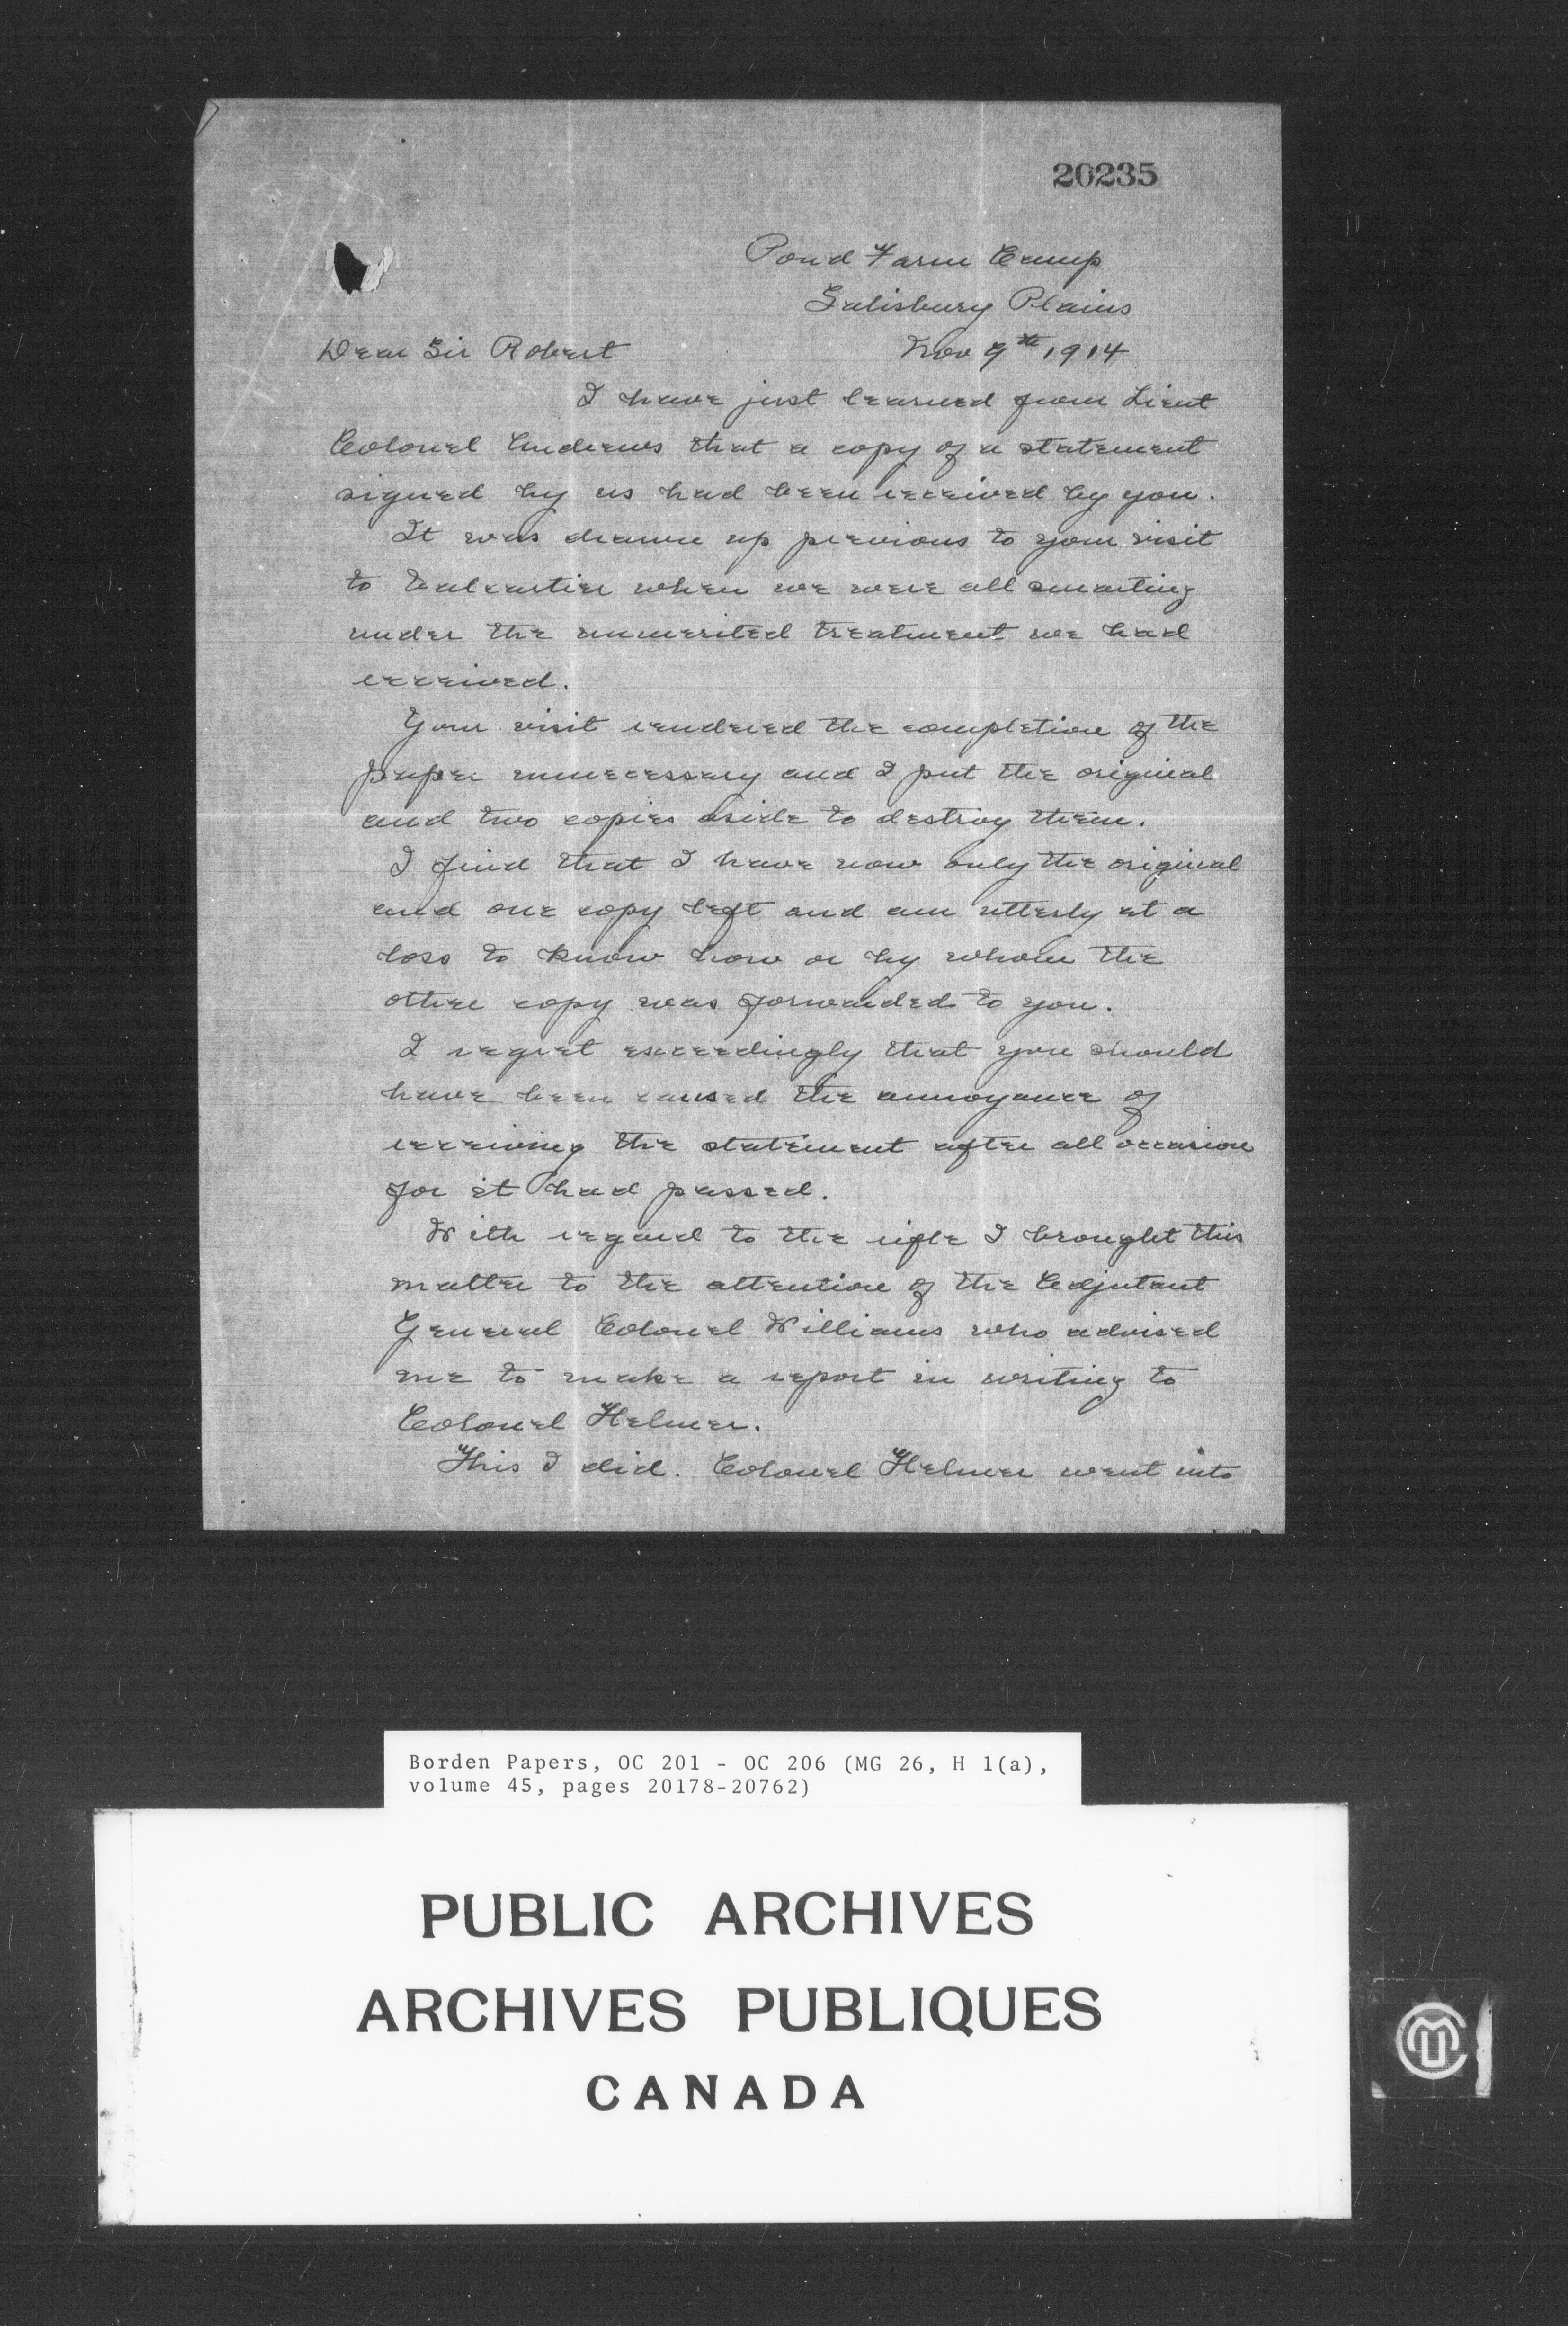 20235
Pond Farm Camp
Salisbury Plains
Dear Sir Robert
Nov 9th 1914
I have just learned from Lieut
Colonel Andrews that a copy of a statement
signed by us had been received by you.
It was drawn up previous to your visit
to Valcartier when we were all smarting
under the unmerited treatment we had
received.
Your visit rendered the completion of the
paper unnecessary and I put the original
and two copies aside to destroy them.
I find that I have now only the original
and one copy left and am utterly at a
loss to know how or by whom the
other copy was forwarded to you.
I regret exceedingly that you should
have been caused the annoyance of
receiving the statement after all occasion
for it had passed.
With regard to the rifle I brought this
matter to the attention of the Adjutant
General Colonel Williams who advised
me to make a report in writing to
Colonel Helmer.
This I did. Colonel Helmer went into
Borden Papers, OC 201 - OC 206 (MG 26, H 1(a),
volume 45, pages 20178-20762)
PUBLIC ARCHIVES
ARCHIVES PUBLIQUES
CANADA